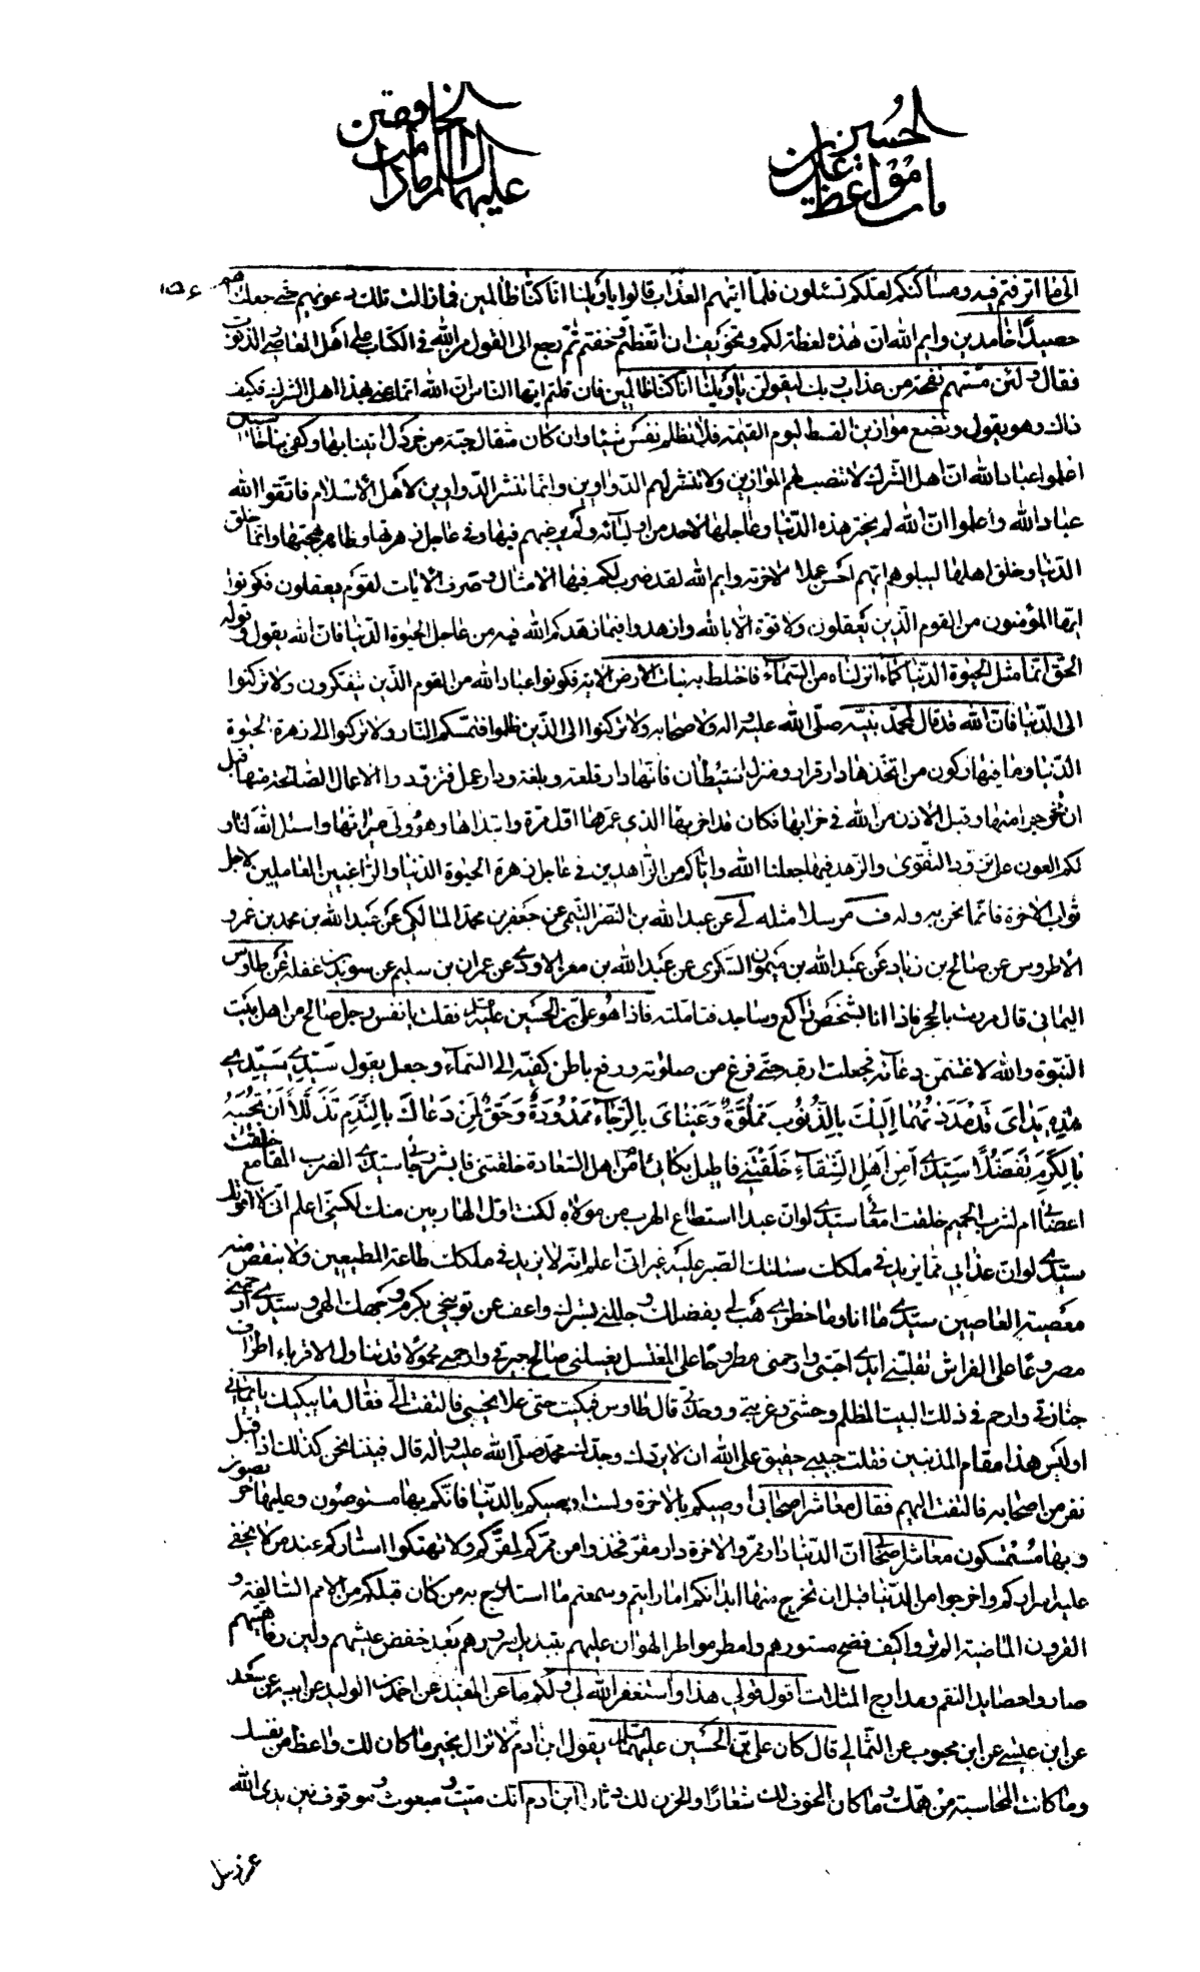 باب مواعظ علي بن الحسين
عليهما السلام ما دامت الخافقين
١٥٤
الى ما اترفتم فيه ومساكنكم لعلكم تسئلون فلما اتيهم العذاب قالوا يا ويلنا انا كنا ظالمين فما زالت تلك دعويهم حتى جعلناهم
حصيدا خامدين وايم الله ان هذه لعظة لكم وتخويف ان اتعظتم وخفتم ثم رجع الى القول من الله في الكتاب على اهل المعاصي والذنوب
فقال ولئن مستهم نفحة من عذاب ربك ليقولن يا ويلنا انا كنا ظالمين فان قلتم ايها الناس ان الله انما عنى بهذا اهل الشرك فكيف
ذلك وهو يقول ونضع موازين القسط ليوم القيمة فلا تظلم نفس شيئا وان كان مثقال حبة من خردل اتينا بها وكفى بنا حاسبين
اعلموا عباد الله ان اهل الشرك لا تنصب لهم الموازين ولا تنشر لهم الدواوين وانما تنشر الدواوين لاهل الاسلام فاتقوا الله
عباد الله واعلموا ان الله لم يختر هذه الدنيا وعاجلها لاحد من اوليآئه ولم يرغبهم فيها وفي عاجل زهرتها وظاهر بهجتها وانما خلق
الدنيا وخلق اهلها ليبلوهم ايهم احسن عملا لاخرته وايم الله لقد ضرب لكم فيها الامثال وصرف الايات لقوم يعقلون فكونوا
ايها المؤمنون من القوم الذين يعقلون ولا قوة الا بالله وازهدوا فيما زهدكم الله فيه من عاجل الحيوة الدنيا فان الله يقول وقوله
الحق انما مثل الحيوة الدنيا كماء انزلناه من السمآء فاختلط به نبات الارض الاية فكونوا عباد الله من القوم الذين يتفكرون ولا تركنوا
الى الدنيا فان الله قد قال لمحمد نبيه صلى الله عليه واله ولاصحابه ولا تركنوا الى الذين ظلموا فتمسكم النار ولا تركنوا الى زهرة الحيوة
الدنيا وما فيها ركون من اتخذها دار قرار ومنزل استيطان فانها دار قلعة وبلغة ودار عمل فتزودوا الاعمال الصالحة منها قبل
ان تخرجوا منها وقبل الاذن من الله في خرابها فكان قد اخربها الذي عمرها اول مرة وابتداها وهو ولي ميراثها واسئل الله لنا و
لكم العون على تزود التقوى والزهد فيها جعلنا الله واياكم من الزاهدين في عاجل زهرة الحيوة الدنيا والراغبين العاملين لاجل
ثواب الاخرة فانما نحن به وله ف مرسلا مثله لى عن عبد الله بن النضر التيمي عن جعفر بن محمد المالكي عن عبد الله بن محمد بن عمرو
الاطروس عن صالح بن زياد عن عبد الله بن ميمون السكري عن عبد الله بن معز الاودي عن عمران بن سليم عن سويد بن غفلة عن طاوس
اليماني قال مررت بالحجر فاذا انا بشخص راكع وساجد فتاملته فاذا هو علي بن الحسين عليه فقلت يا نفس رجل صالح من اهل بيت
النبوة والله لاغتنمن دعآئه فجعلت ارقبه حتى فرغ من صلوته ورفع باطن كفيه الى السمآء وجعل يقول سيدي سيدي
هذه يداى قد مددتهما اليك بالذنوب مملوة وعيناى بالرجآء ممدودة وحق لمن دعاك بالندم تذللا ان تجيبه
بالكرم تفضلا سيدي امن اهل الشقآء خلقتني فاطيل بكائي ام من اهل السعادة خلقتني فابشر رجائي سيدي الضرب المقامع خلقت
اعضائي ام لشرب الحميم خلقت امعائي سيدي لو ان عبدا استطاع الهرب من مولاه لكنت اول الهاربين منك لكني اعلم اني لا افوتك
سيدي لو ان عذابي مما يزيد في ملكك سئلتك الصبر عليه غير اني اعلم انه لا يزيد في ملكك طاعة المطيعين ولا ينقص منه
معصية العاصين سيدي ما انا وما خطري هب لي بفضلك وجللني بسترك واعف عن توبيخي بكرم وجهك الهي وسيدي ارحمني
مصروعا على الفراش تقلبني ايدي احبتي وارحمني مطروحا على المغتسل يغسلني صالح جيرتي وارحمني محمولا قد تناول الاقرباء اطراف
جنازتي وارحم في ذلك البيت المظلم وحشتي وغربتي ووحدتي قال طاوس فبكيت حتى علا نحيبي فالتفت الي فقال ما يبكيك يا يماني
اوليس هذا مقام المذنبين فقلت حبيبي حقيق على الله ان لا يردك وجدك محمد صلى الله عليه واله قال فبينا نحن كذلك اذ اقبل
نفر من اصحابه فالتفت اليهم فقال معاشر اصحابي اوصيكم بالاخرة ولست اوصيكم بالدنيا فانكم بها مستوصون وعليها حريصون
وبها مستمسكون معاشر اصحابي ان الدنيا دار ممر والاخرة دار مقر فخذوا من ممركم لمقركم ولا تهتكوا استاركم عند من لا يخفى
عليه اسراركم واخرجوا من الدنيا قبل ان تخرج منها ابدانكم اما رايتم وسمعتم ما استدرج به من كان قبلكم من الامم السالفة و
القرون الماضية الم تروا كيف فضح مستورهم وامطر مواطر الهوان عليهم بتبديل سرورهم بعد خفض عيشهم ولين رفاهيتهم
صاروا حصايد النقم ومدارج المثلات اقول قولي هذا واستغفر الله لي ولكم ما عن المفيد عن احمد بن الوليد عن ابيه عن سعد
عن ابن عيسى عن ابن محبوب عن الثمالي قال كان علي بن الحسين عليهما يقول ابن ادم لا تزال بخير ما كان لك واعظ من نفسك
وما كانت المحاسبة من همك وما كان الخوف لك شعارا والحزن لك دثارا ابن ادم انك ميت ومبعوث وموقوف بين يدى الله
عز وجل